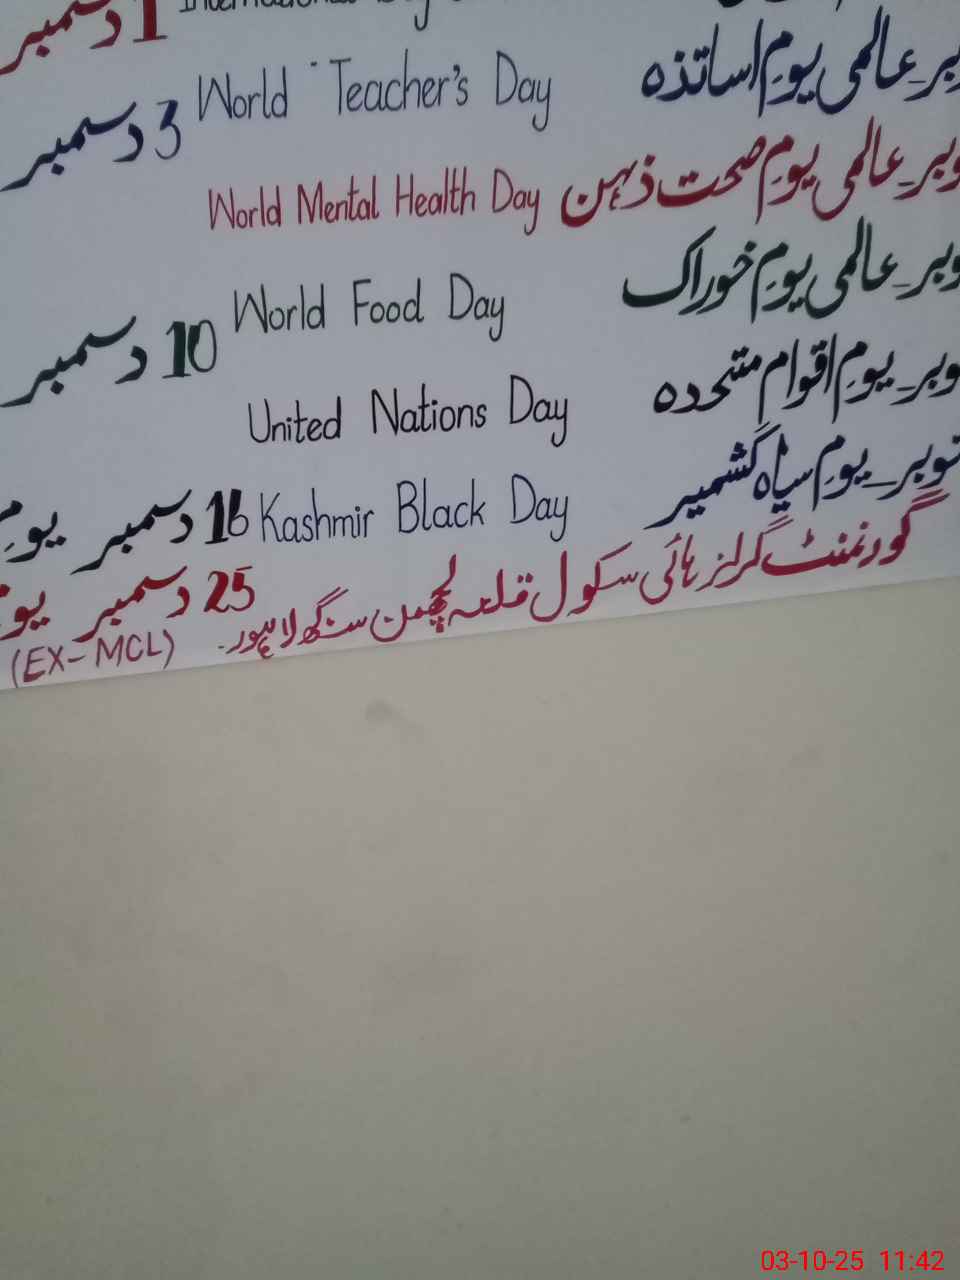 1 دسمبر International
World Teacher's Day عالمی یومِ اساتذہ
3 دسمبر
World Mental Health Day عالمی یومِ صحت ذہن
World Food Day عالمی یومِ خوراک
10 دسمبر
United Nations Day یومِ اقوام متحدہ
Kashmir Black Day یومِ سیاہ کشمیر
16 دسمبر
25 دسمبر
گورنمنٹ گرلز ہائی سکول قلعہ لچھمن سنگھ لاہور۔
(EX-MCL)
03-10-25 11:42